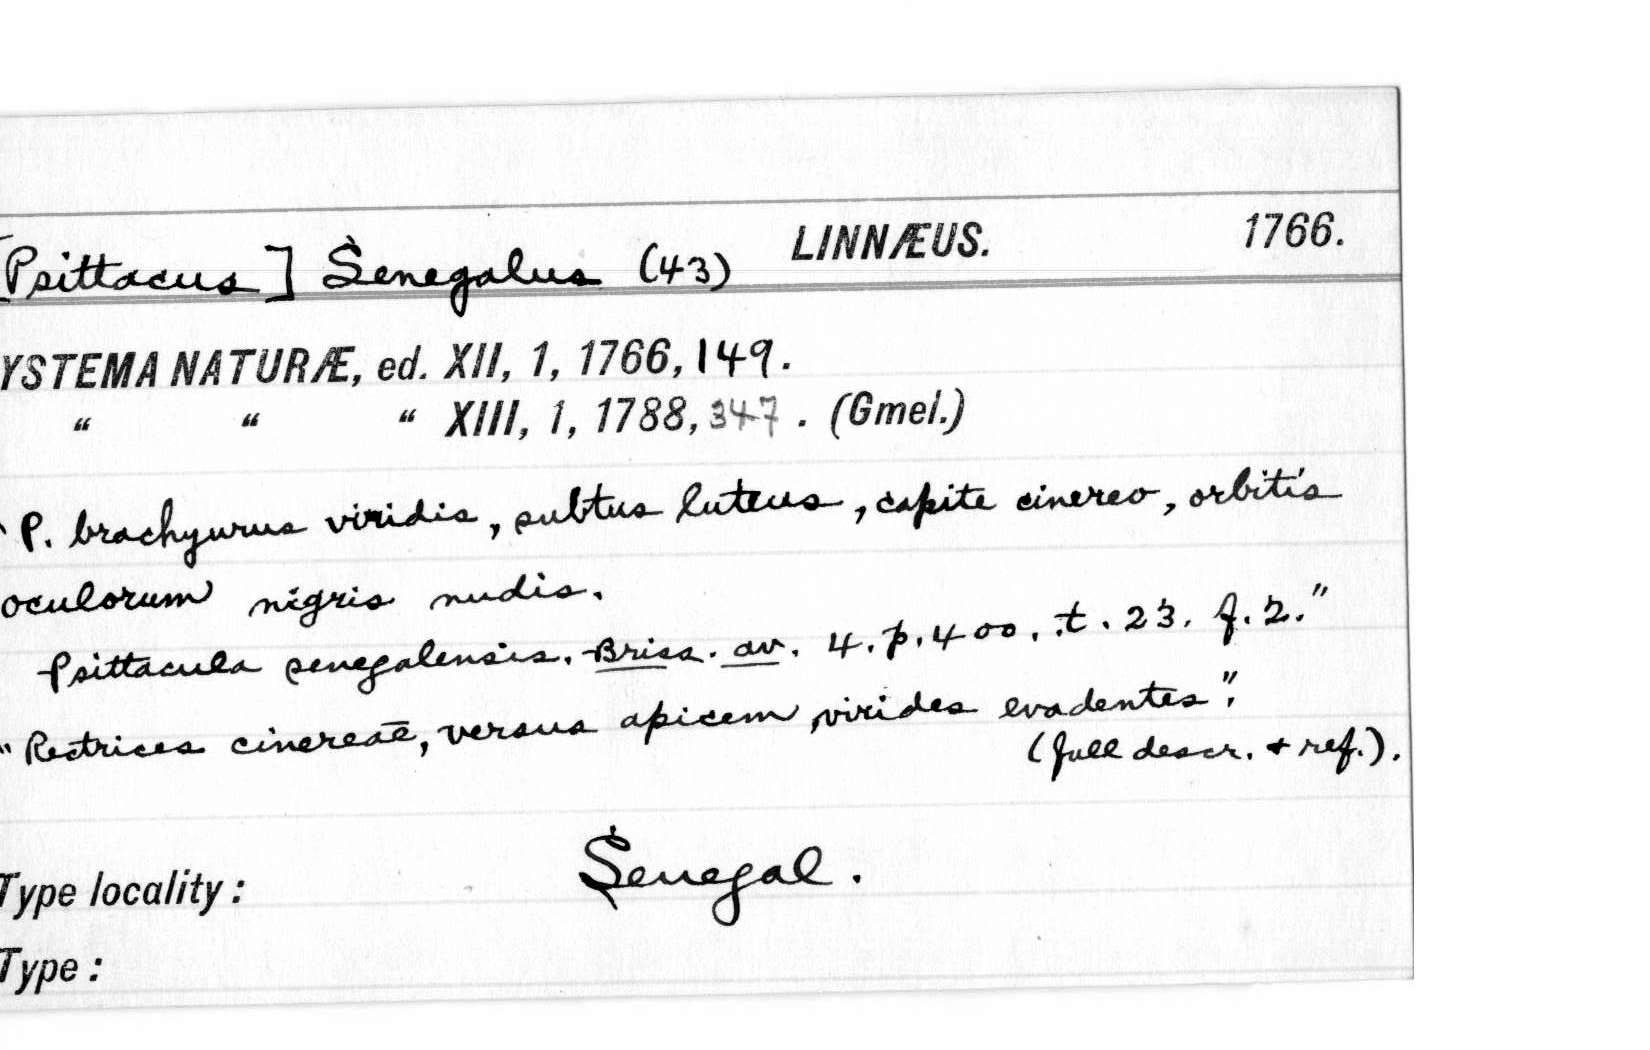 [Psittacus] Senegalus (43) LINNÆUS. 1766.
YSTEMA NATURÆ, ed. XII, 1, 1766, 149.
“ “ “ XIII, 1, 1788, 347. (Gmel.)
" P. brachyurus viridis, subtus luteus, capite cinereo, orbitis
oculorum nigris nudis.
Psittacula senegalensis. Briss. av. 4. p. 400. t. 23. f. 2."
" Rectrices cinereae, versus apicem, virides evadentes".
(full descr. + ref.).
Type locality: Senegal.
Type: